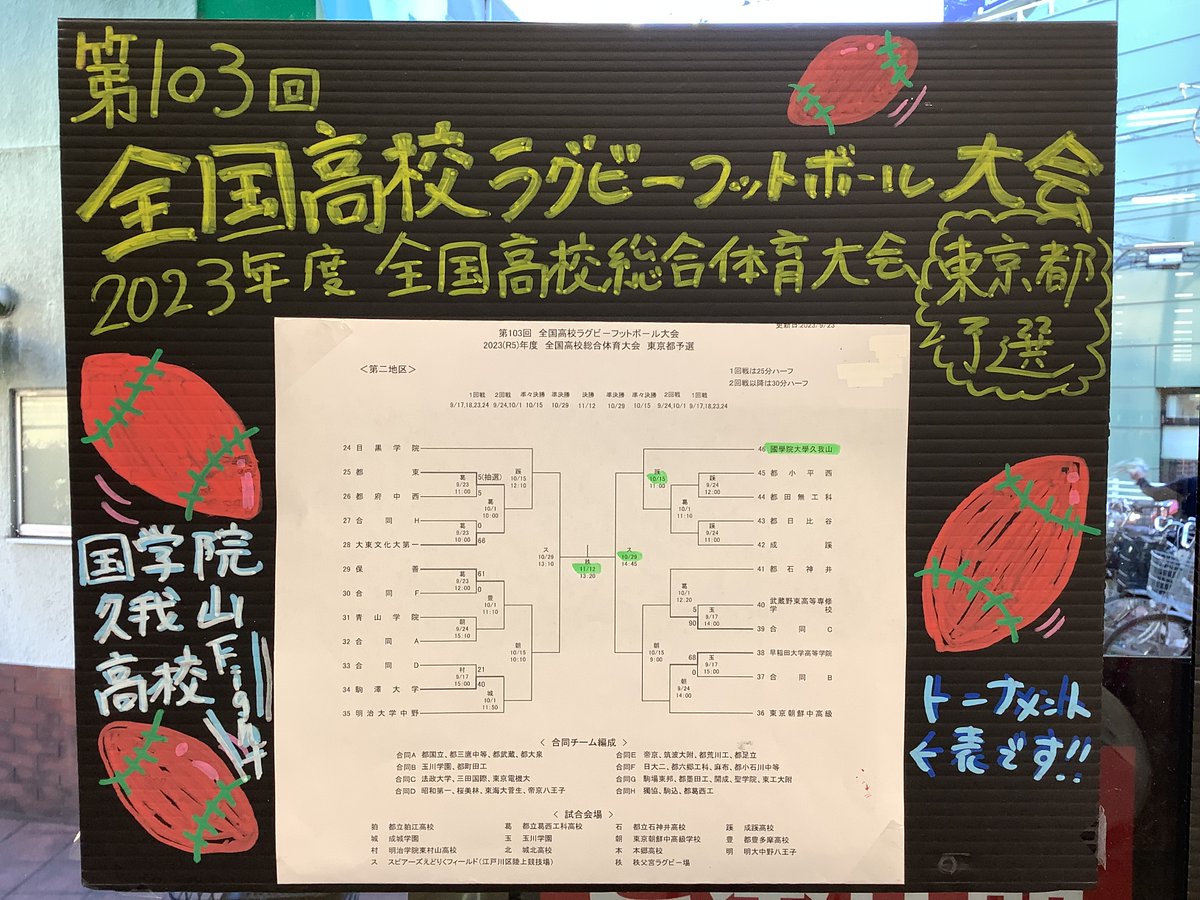 第103回
全国高校ラグビーフットボール大会
2023年度 全国高校総合体育大会
東京都
予選
更新日:2023/9/23
第103回 全国高校ラグビーフットボール大会
2023(R5)年度 全国高校総合体育大会 東京都予選
＜第二地区＞
1回戦は25分ハーフ
2回戦以降は30分ハーフ
1回戦 2回戦 準々決勝 準決勝 決勝 準決勝 準々決勝 2回戦 1回戦
9/17,18,23,24 9/24,10/1 10/15 10/29 11/12 10/29 10/15 9/24,10/1 9/17,18,23,24
24 目黒学院
25 都東
26 都府中西
27 合同H
28 大東文化大第一
29 保善
30 合同F
31 青山学院
32 合同A
33 合同D
34 駒澤大学
35 明治大学中野
葛 9/23 11:00
5(抽選)
5
葛 9/23 10:00
0
66
葛 10/1 10:00
蹊 10/15 12:10
葛 9/23 12:00
61
0
朝 9/24 15:10
豊 10/1 11:10
村 9/17 15:00
21
40
城 10/1 11:50
朝 10/15 10:10
ス 10/29 13:10
秩 11/12 13:20
ス 10/29 14:45
46 國學院大學久我山
45 都小平西
44 都田無工科
43 都日比谷
42 成蹊
41 都石神井
40 武蔵野東高等専修学校
39 合同C
38 早稲田大学高等学院
37 合同B
36 東京朝鮮中高級
蹊 10/15 11:00
蹊 9/24 12:00
葛 10/1 11:10
蹊 9/24 11:00
葛 10/1 12:20
5
90
玉 9/17 14:00
朝 10/15 9:00
68
0
玉 9/17 15:00
朝 9/24 14:00
＜ 合同チーム編成 ＞
合同A 都国立、都三鷹中等、都武蔵、都大泉
合同B 玉川学園、都町田工
合同C 法政大学、三田国際、東京電機大
合同D 昭和第一、桜美林、東海大菅生、帝京八王子
合同E 帝京、筑波大附、都荒川工、都足立
合同F 日大二、都六郷工科、麻布、都小石川中等
合同G 駒場東邦、都墨田工、開成、聖学院、東工大附
合同H 獨協、駒込、都葛西工
＜ 試合会場 ＞
狛 都立狛江高校 葛 都立葛西工科高校 石 都立石神井高校 蹊 成蹊高校
城 成城学園 玉 玉川学園 朝 東京朝鮮中高級学校 豊 都豊多摩高校
村 明治学院東村山高校 北 城北高校 本 本郷高校 明 明大中野八王子
ス スピアーズえどりくフィールド(江戸川区陸上競技場) 秩 秩父宮ラグビー場
国学院
久我山
高校
Fight
トーナメント
←表です!!